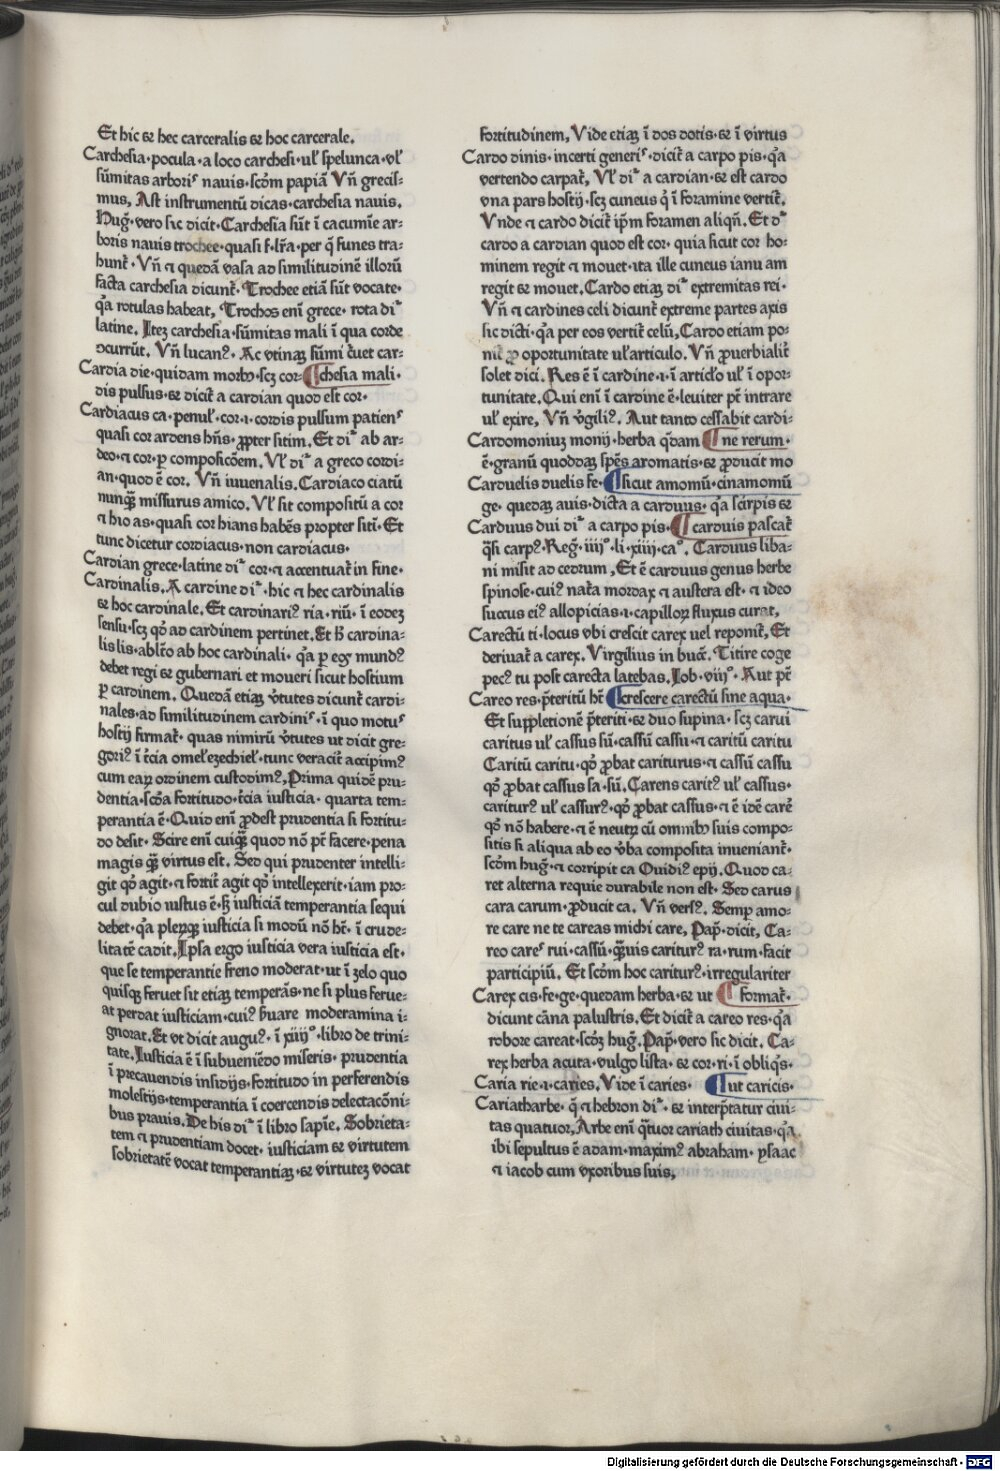 Et hic ⁊ hec carceralis ⁊ hoc carcerale.
Carchesia·pocula·a loco carchesi·ul̕ spelunca·vl̕
sūmitas arboriˢ nauis·scōm papiā Vñ grecis-
mus, Ast instrumentū dicas·carchesia nauis.
Hug̃·vero sic dicit·Carchesia sūt ī cacumīe ar-
boris nauis trochee·quasi f·lr̄a·per q̄ funes tra-
hunt̃·Vñ ⁊ quedā vasa ad similitudinē illorū
facta carchesia dicunt̃·Trochee etiā sūt vocate·
q̄a rotulas habeāt, Trochos enī grece·rota diʳ
latine. Iteꝫ carchesia·sūmitas mali ī qua corde
ocurrūt. Vñ lucanꝰ. Ac vtinaꝫ sūmi t̃uet car-
Cardia die·quidam morbꝰ·scꝫ cor- ¶chesia mali·
dis pulsus·⁊ dicit̃ a cardian quod est cor·
Cardiacus ca·penul̕·cor·ı·cordis pulsum patienˢ
quasi cor ardens hñs·ꝓpter sitim. Et diʳ ab ar-
deo·⁊ cor·ꝑ composicōem. Vl̕ diʳ a greco cordi-
an·quod ē cor. Vñ iuuenalis. Cardiaco ciatū
nunqꝫ missurus amico. Vl̕ sit compositū a cor
⁊ hio as·quasi cor hians habēs propter sitī·Et
tunc dicetur cordiacus·non cardiacus·
Cardian grece·latine diʳ cor·⁊ accentuat̃ in fine·
Cardinalis. A cardine diʳ·hic ⁊ hec cardinalis
⁊ hoc cardinale. Et cardinariꝰ ria·riū·ī eodeꝫ
sensu·scꝫ qd̕ ad cardinem pertinet. Et ħ cardina-
lis lis·ablt̃o ab hoc cardinali·q̄a ꝑ eꝫ mundꝰ
debet regi ⁊ gubernari et moueri sicut hostium
ꝑ cardinem. Quedā etiaꝫ v̄tutes dicunt̃ cardi-
nales·ad similitudinem cardinīˢ·ī quo motuˢ
hostij firmat̃·quas nimirū v̄tutes ut dicit gre-
goriꝰ ī t̃cia omel̕ ezechiel̕·tunc veracit̃ accipimꝰ
cum eaꝝ ordinem custodimꝰ, Prima quidē pru-
dentia·scd̄a fortitudo·t̃cia iusticia·quarta tem-
perantia ē·Quid enī ꝓdest prudentia si fortitu-
do desit·Scire enī cuiqꝫ quod nō pt̃ facere·pena
magis qꝫ virtus est. Sed qui prudenter intelli-
git qd̕ agit·⁊ fortit̃ agit qd̕ intellexerit·iam pro-
cul dubio iustus ē·sꝫ iusticiā temperantia sequi
debet·q̄a pleꝝqꝫ iusticia si modū nō ht̃·ī crude-
litatē cadit, Ipsa ergo iusticia vera iusticia est·
que se temperantie freno moderat·ut ī zelo quo
quisqꝫ feruet sit etiaꝫ temperās·ne si plus ferue-
at perdat iusticiam·cuiꝰ ẜuare moderamina i-
gnorat. Et vt dicit auguꝰ·ī xiiijº·libro de trini-
tate. Iusticia ē ī subueniēdo miseris·prudentia
ī precauendis insidijs·fortitudo in perferendis
molestijs·temperantia ī coercendis delectacōni-
bus prauis. De his diʳ ī libro sapīe. Sobrieta-
tem ⁊ prudentiam docet·iusticiam ⁊ virtutem
sobrietatē vocat temperantiaꝫ·⁊ virtuteꝫ vocat
fortitudinem, Vide etiaꝫ ī dos dotis·⁊ ī virtus
Cardo dinis·incerti generiˢ·dicit̃ a carpo pis·q̄a
vertendo carpat̃, Vl̕ diʳ a cardian·⁊ est cardo
vna pars hostij·scꝫ cuneus q̄ ī foramine vertit̃.
Vnde ⁊ cardo dicit̃ ip̄m foramen aliqñ. Et dʳ
cardo a cardian quod est cor·quia sicut cor ho-
minem regit ⁊ mouet·ita ille cuneus ianu am
regit ⁊ mouet. Cardo etiaꝫ diʳ extremitas rei·
Vñ ⁊ cardines celi dicunt̃ extreme partes axis
sic dicti·q̄a per eos vertit̃ celū, Cardo etiam po-
nit̃ ꝓ oportunitate ul̕ articulo. Vñ ꝓuerbialit̃
solet dici. Res ē ī cardine·ı·ī articl̕o ul̕ ī opor-
tunitate. Qui enī ī cardine ē·leuiter pt̃ intrare
ul̕ exire, Vñ v̄giliꝰ. Aut tanto cessabit cardi-
Cardomoniuꝫ monij·herba q̄dam ¶ne rerum·
ē·granū quoddaꝫ spēs aromatis·⁊ ꝓducit mo
Carduelis duelis fe· ¶sicut amomū·cinamomū
ge·quedaꝫ auis·dicta a carduus·q̄a scirpis ⁊
Carduus dui diʳ a carpo pis· ¶carduis pascat̃
q̄si carpꝰ·Reg̃·iiijº·li·xiiij·caº. Carduus liba-
ni misit ad cedrum, Et ē carduus genus herbe
spinose·cuiꝰ nat̃a mordax ⁊ austera est·⁊ ideo
succus eiꝰ allopicias·ı·capilloꝝ fluxus curat.
Carectū ti·locus vbi crescit carex uel reponit̃, Et
deriuat̃ a carex. Virgilius in bucc̃. Titire coge
pecꝰ tu post carecta latebas. Iob·viijº·Aut pt̃
Careo res·p̄teritū ht̃ ¶crescere carectū sine aqua·
Et suppletionē p̄teriti·⁊ duo supina·scꝫ carui
caritus ul̕ cassus sū·cassū cassu·⁊ caritū caritu
Caritū caritu·qd̕ ꝓbat cariturus·⁊ cassū cassu
qd̕ ꝓbat cassus sa·sū. Carens caritꝰ ul̕ cassus·
cariturꝰ ul̕ cassurꝰ·qd̕ ꝓbat cassus·⁊ ē idē carē
qd̕ nō habere·⁊ ē neutꝝ cū omnibꝰ suis compo-
sitis si aliqua ab eo v̄ba composita inueniant̃·
scōm hug̃·⁊ corripit ca Ouidiꝰ epij. Quod ca-
ret alterna requie durabile non est·Sed carus
cara carum·ꝓducit ca. Vñ versꝰ. Semꝑ amo-
re care ne te careas michi care, Pap̄·dicit, Ca-
reo careˢ rui·cassū·qꝫuis cariturꝰ ra·rum·facit
participiū. Et scōm hoc cariturꝰ·irregulariter
Carex cis·fe·ge·quedam herba·⁊ ut ¶format̃·
dicunt cāna palustris. Et dicit̃ a careo res·q̄a
robore careat·scōꝫ hug̃. Pap̄·vero sic dicit. Ca-
rex herba acuta·vulgo lista·⁊ cor·ri·ī obliq̄s·
Caria rie·ı·caries. Vide ī caries· ¶ut caricis·
Cariatharbe·q̄ ⁊ hebron diʳ·⁊ interp̄tatur ciui-
tas quatuor, Arbe enī q̄tuor cariath ciuitas·q̄a
ibi sepultus ē adam·maximꝰ abraham·ysaac
⁊ iacob cum vxoribus suis,
Digitalisierung gefördert durch die Deutsche Forschungsgemeinschaft - DFG